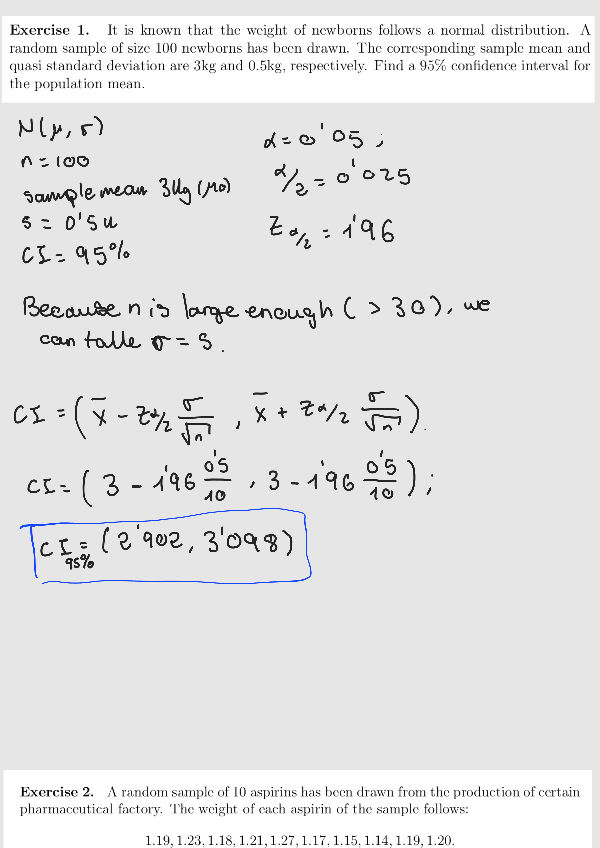 Exercise 1. It is known that the weight of newborns follows a normal distribution. A
random sample of size 100 newborns has been drawn. The corresponding sample mean and
quasi standard deviation are 3kg and 0.5kg, respectively. Find a 95% confidence interval for
the population mean.
N(μ, σ)
n = 100
sample mean 3Kg (μo)
s = 0'5 u
CI = 95%
α = 0'05 ;
α/2 = 0'025
Z α/2 = 1'96
Because n is large enough ( > 30 ), we
can take σ = s.
CI = ( x̄ - Zα/2 σ/√n , x̄ + Zα/2 σ/√n ).
CI = ( 3 - 1'96 0'5/10 , 3 - 1'96 0'5/10 ) ;
CI 95% = ( 2'902, 3'098 )
Exercise 2. A random sample of 10 aspirins has been drawn from the production of certain
pharmaceutical factory. The weight of each aspirin of the sample follows:
1.19, 1.23, 1.18, 1.21, 1.27, 1.17, 1.15, 1.14, 1.19, 1.20.